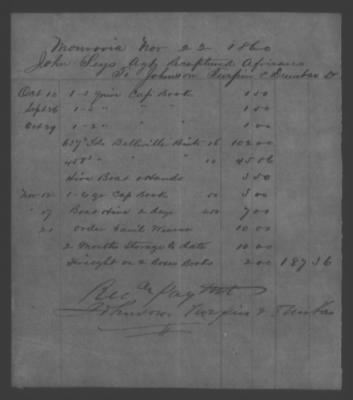 Monrovia Nov 22 1860
John Seys Agt Recaptured Africans
To Johnson Turpin & Dunbar Dr
Oct 10 1-2 quire Cap Book 1 50
Sept 26 1-2 " " " 1 50
Oct 29 1-2 " " " 1 00
637 lbs 16 102 00
450 " " 10 45 06
Hire Boat & Hands 3 50
Nov 12 1-6 qr Cap Book 50 3 00
" 17 Boat Hire 2 days 7 00
21 order 10 00
2 Months Storage to date 10 00
Freight on 2 Boxes Books 2 00 187 36
Rec Payment
Johnson Turpin & Dunbar